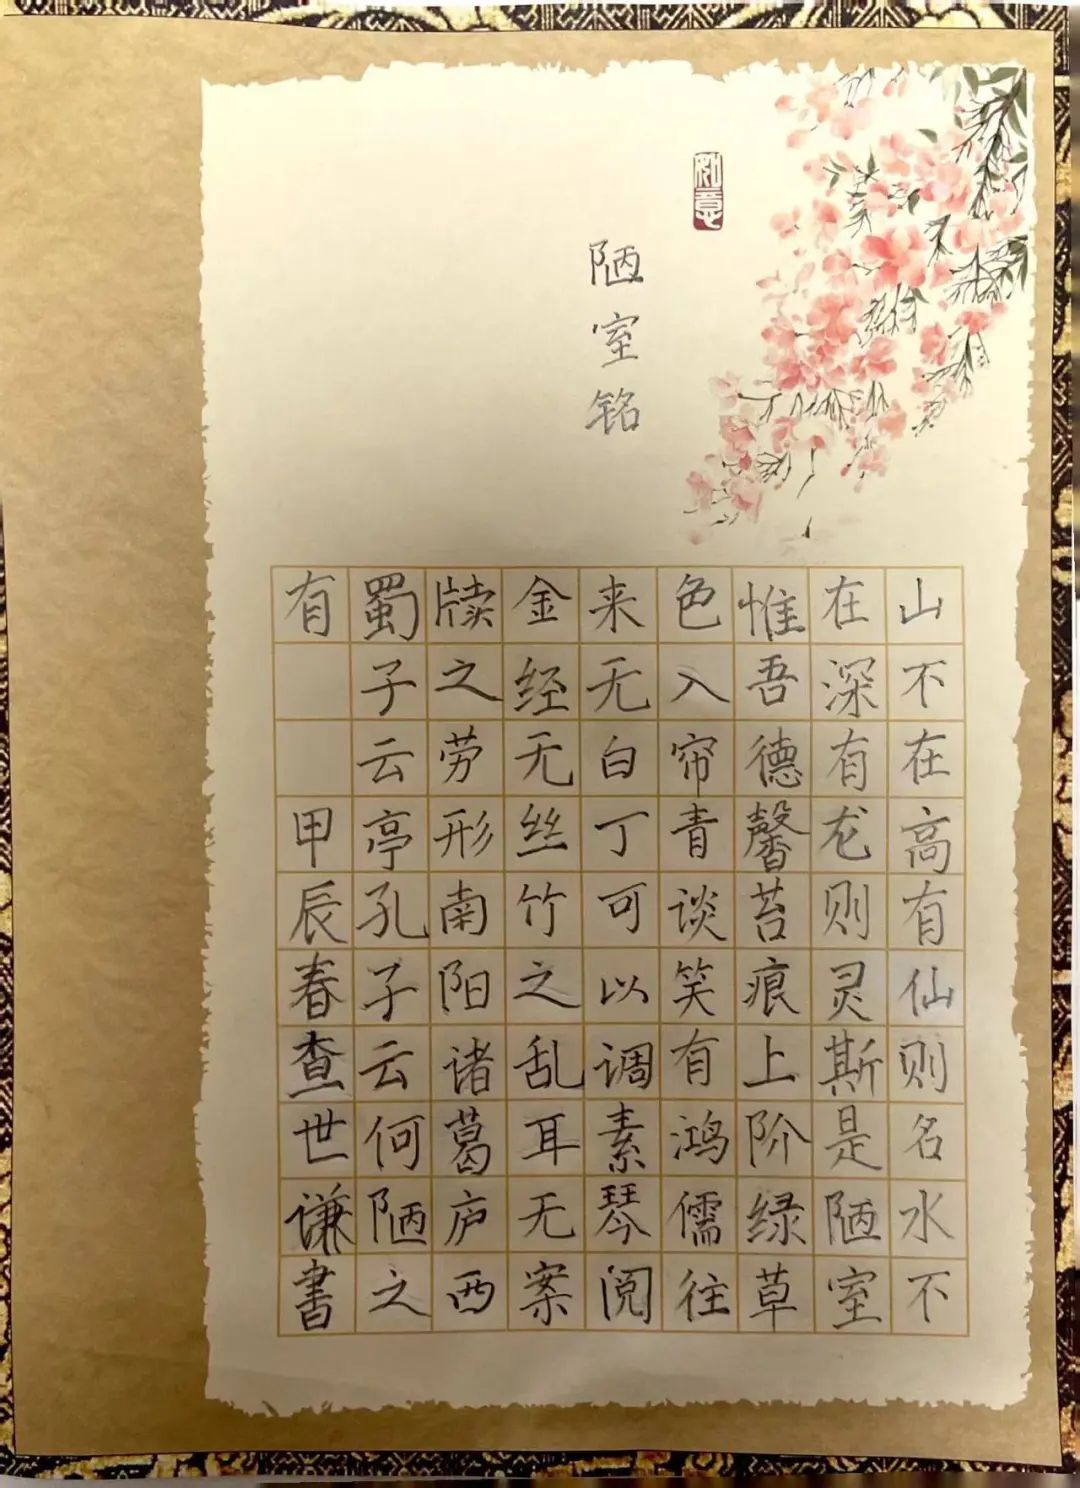 如意
陋室铭
山不在高有仙则名水不
在深有龙则灵斯是陋室
惟吾德馨苔痕上阶绿草
色入帘青谈笑有鸿儒往
来无白丁可以调素琴阅
金经无丝竹之乱耳无案
牍之劳形南阳诸葛庐西
蜀子云亭孔子云何陋之
有 甲辰春查世谦書